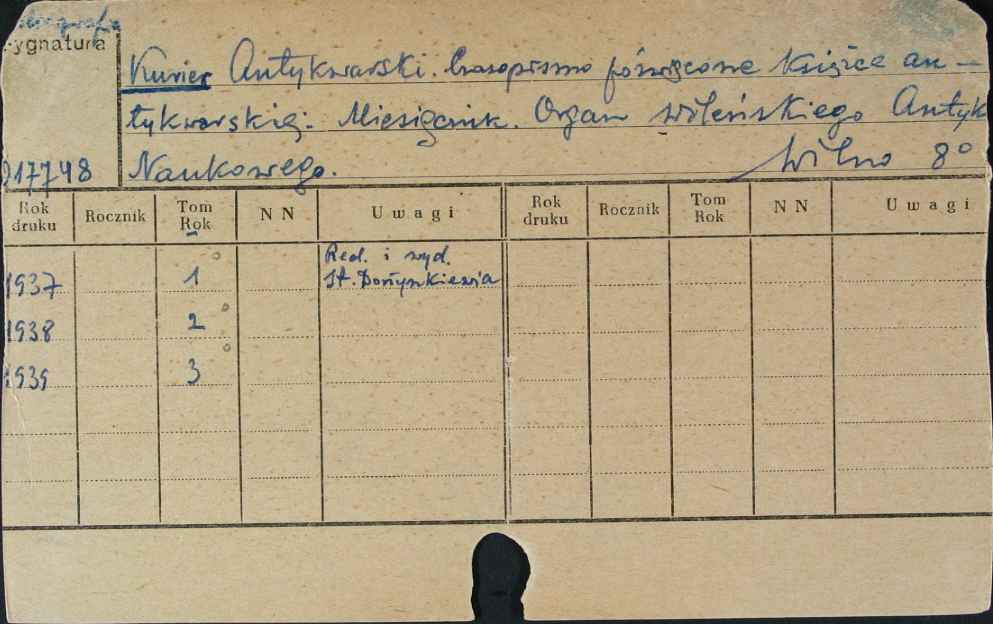 ygnatura
Kurier Antykwarski. Czasopismo poświęcone książce an-
tykwarskiej. Miesięcznik. Organ wileńskiego Antyk
Naukowego. Wilno 8°
17748
Rok druku Rocznik Tom Rok N N Uwagi Rok druku Rocznik Tom Rok N N Uwagi
Red. i wyd.
1937 1 St.
1938 2
1939 3